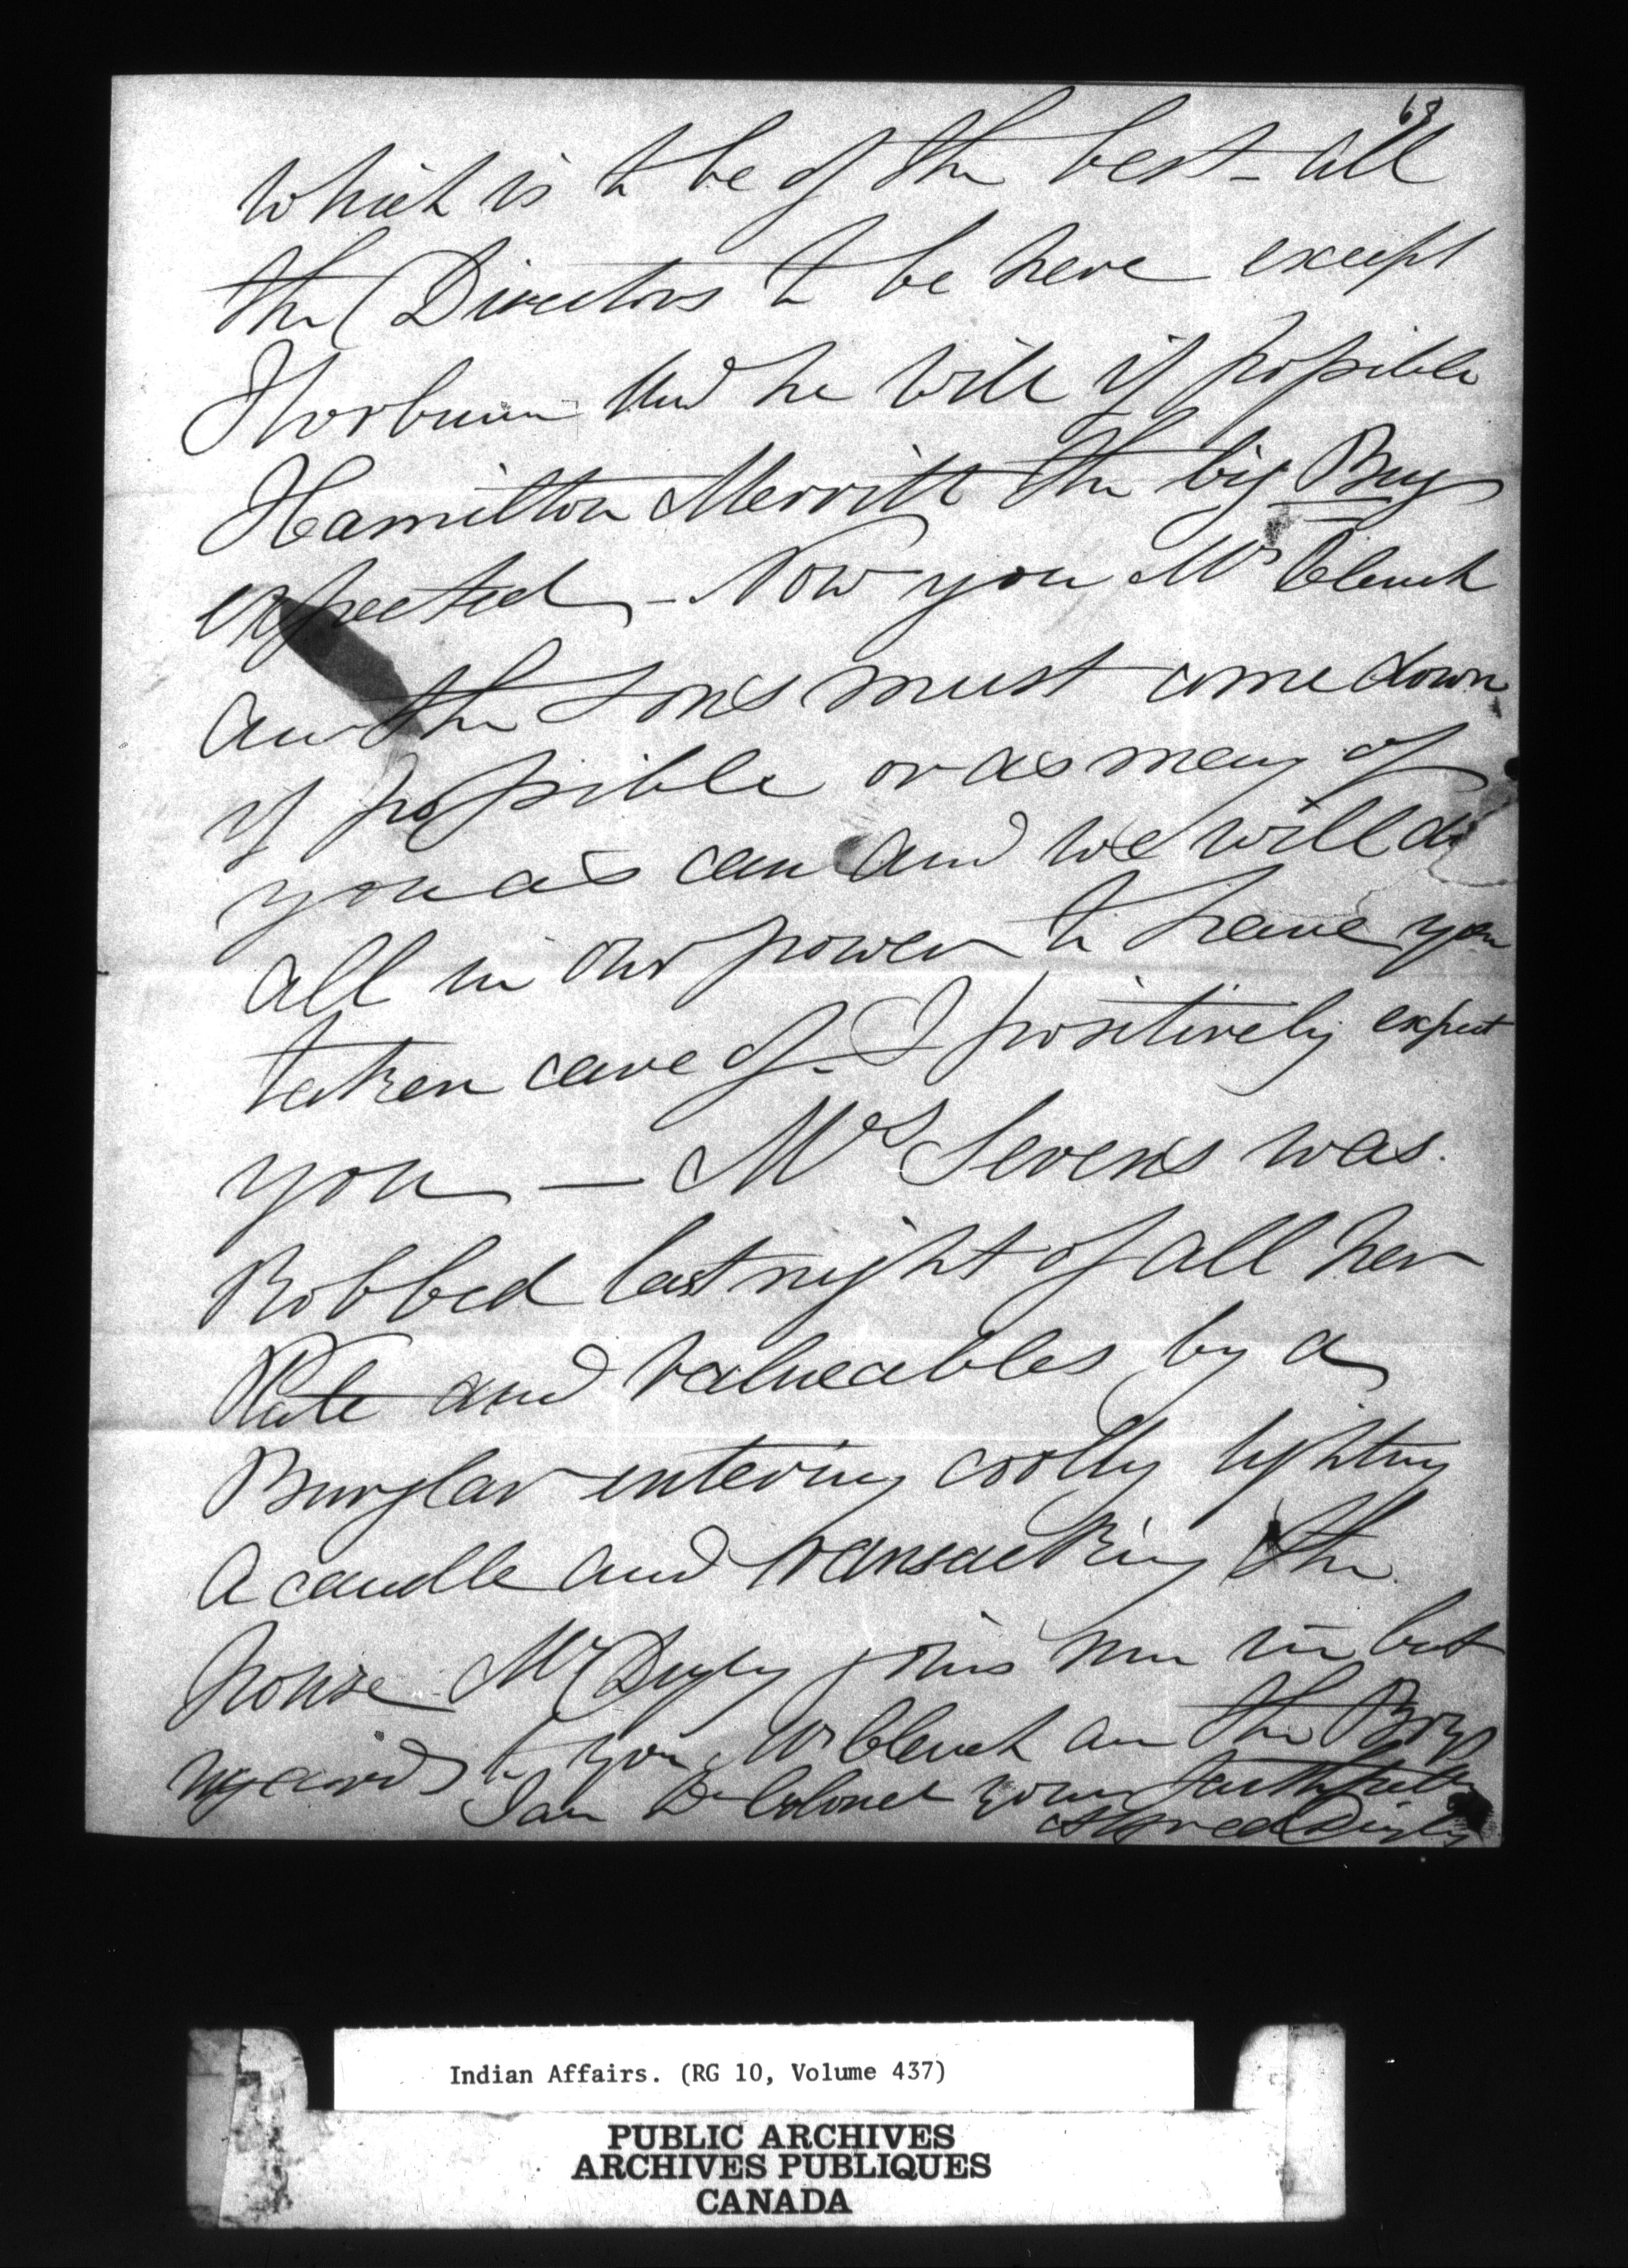 68
which is to be of the best - all
the Directors to be here except
Thorburn and he will if possible
Hamilton Merritt the big Bug
expected - Now you Mrs Clench
and the sons must come down
if possible or as many of
you as can and we will do
all in our power to have you
taken care of - I positively expect
you - Mrs Stevens was
Robbed last night of all her
Plate and valueables by a
Burglar entering coolly lighting
a candle and ransacking the
house Mrs Digby joins me in best
regards to you Mrs Clench and the Boys
I am Dr Colonel yours faithfully
Alfred Digby
Indian Affairs. (RG 10, Volume 437)
PUBLIC ARCHIVES
ARCHIVES PUBLIQUES
CANADA